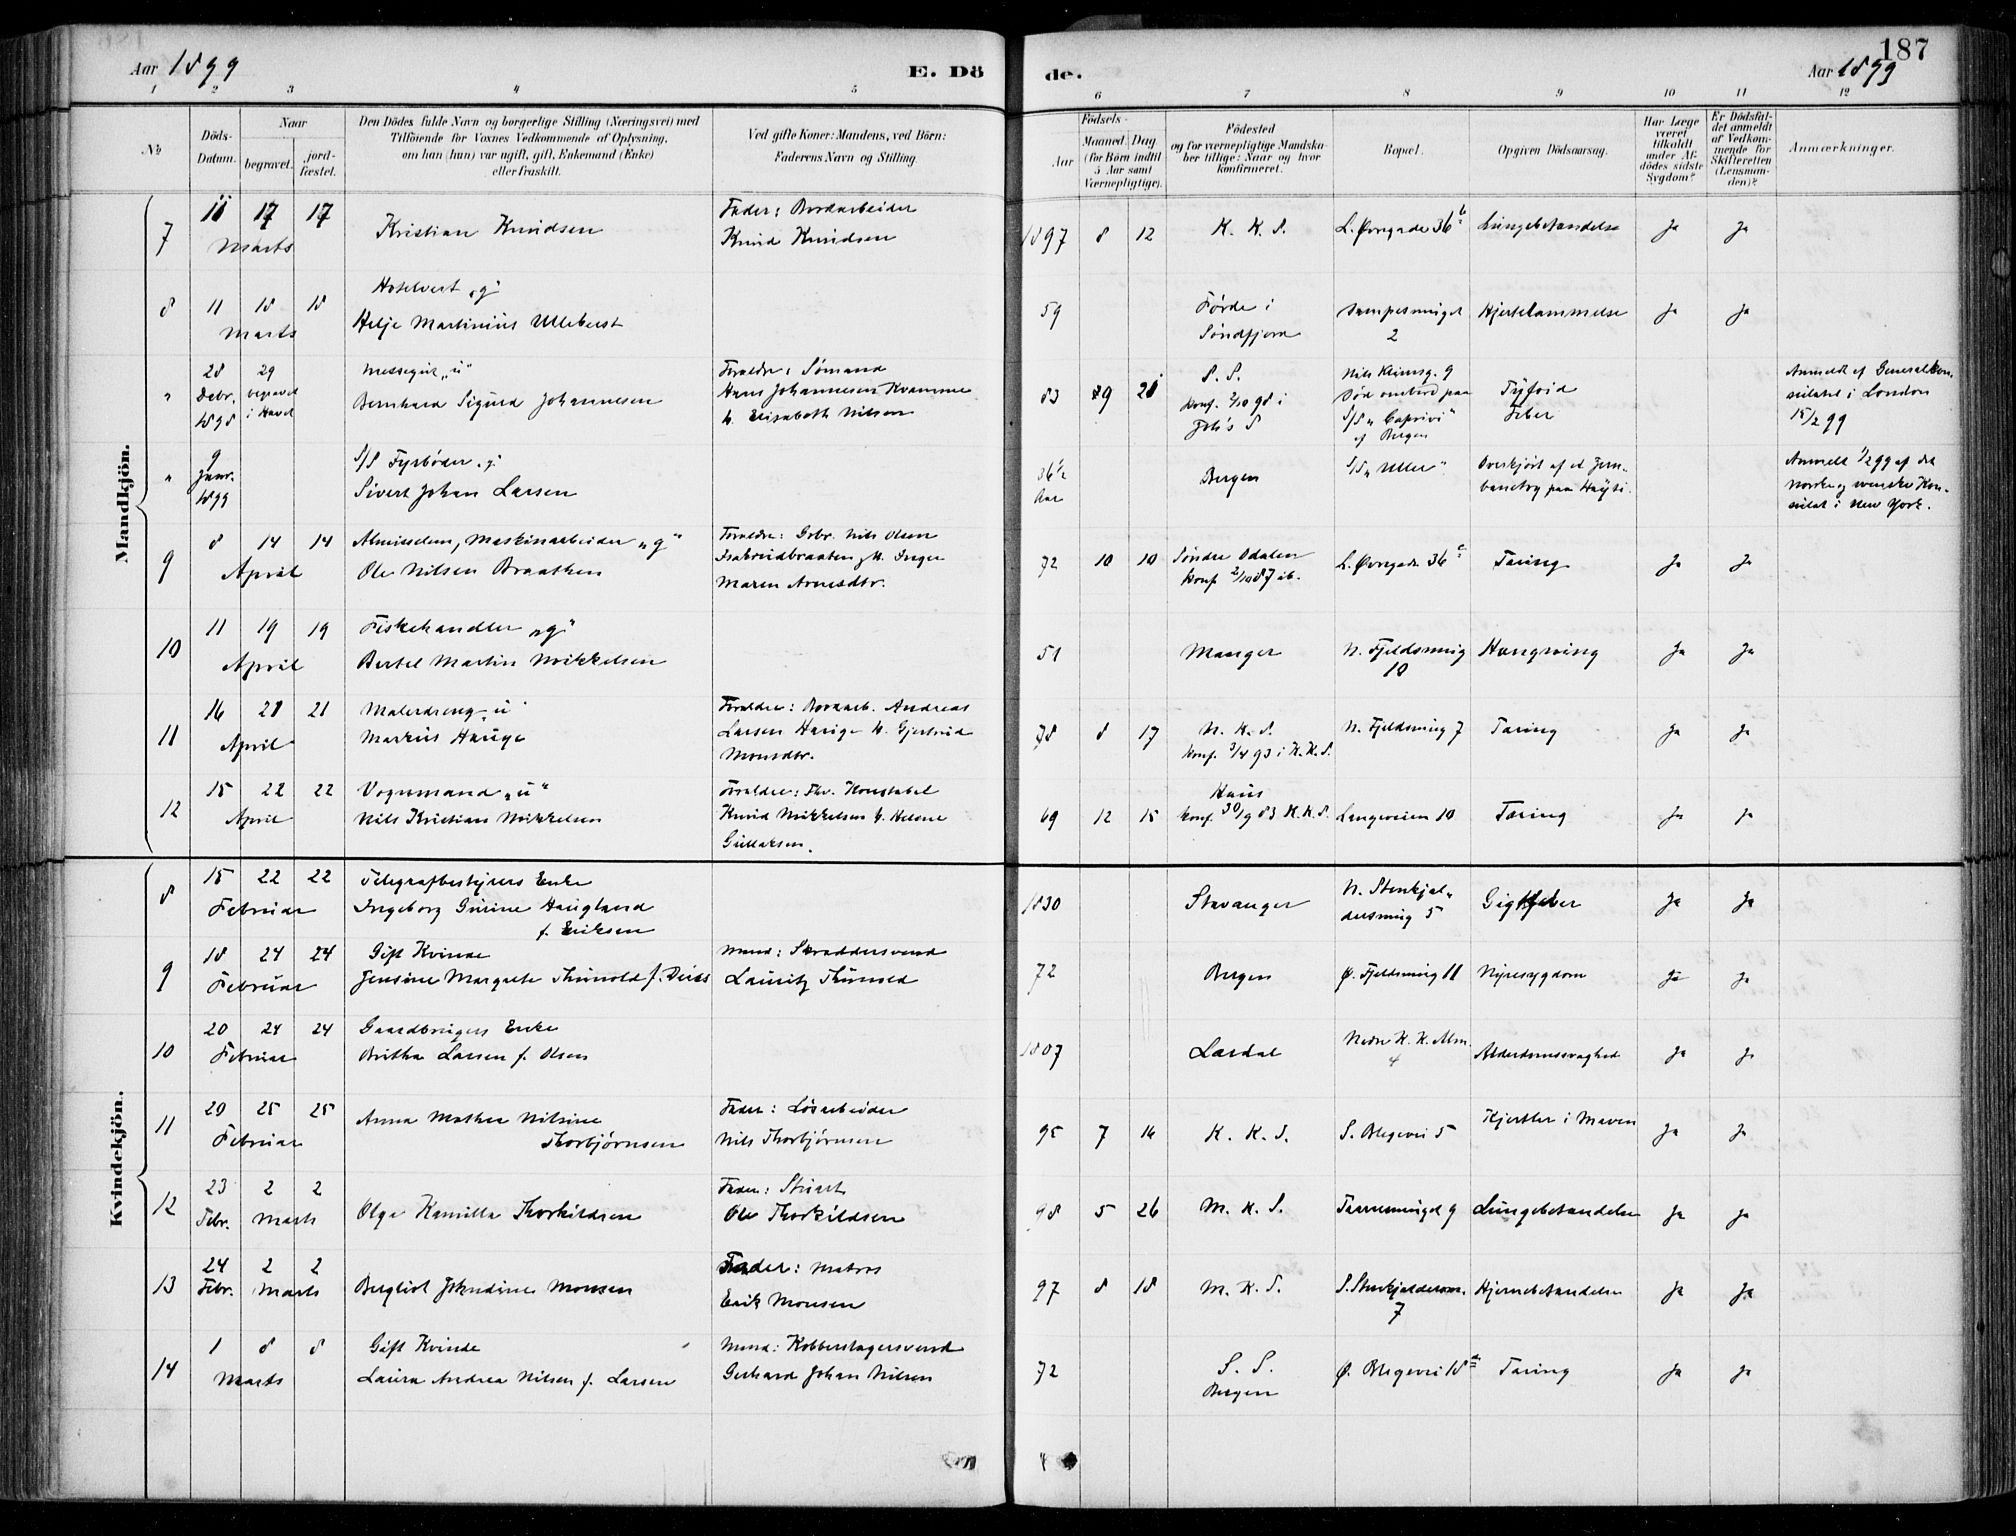 187
Aar 1899
E. Dö
de.
Aar 1899
1 2 3 4 5 6 7 8 9 10 11 12
No
Döds-
Datum.
Naar
begravet.
jord-
fæstet.
Den Dödes fulde Navn og borgerlige Stilling (Næringsvei) med
Tilföiende for Voxnes Vedkommende af Oplysning,
om han (hun) var ugift, gift, Enkemand (Enke)
eller fraskilt.
Ved gifte Koner: Mandens, ved Börn:
Faderens Navn og Stilling.
Födsels-
Aar
Maaned Dag
(for Börn indtil
5 Aar samt
Værnepligtige).
Födested
og for værnepligtige Mandska-
ber tillige: Naar og hvor
konfirmeret.
Bopæl.
Opgiven Dödsaarsag.
Har Læge
været
tilkaldt
under Af-
dödes sidste
Sygdom?
Er Dödsfal-
det anmeldt
af Vedkom-
mende for
Skifteretten
(Lensman-
den)?
Anmærkninger.
Mandkjön.
7 11 17 17 Marts
Kristian Knudsen
Fader: Bordarbeider
Knud Knudsen
1897 8 12 K. K. S. L. Øvregade 36 b Lungebetændelse Ja Ja
8 11 18 18 Marts
Hotelvert „g“
Helje Martinius Ulleberst
59 Førde i
Søndfjord
2 Hjertelammelse Ja Ja
„ 28 Debr. 1898 29 begravet i Havet
Messegut „u“
Bernhard Sigurd Johannesen
Forældre: Sømand
Hans Johannesen Kvamme
h. Elisabeth Nilsen
83 9 28 S. S.
konf. 2/10 98 i
Joh's S
Nils Klimsg. 9
Død ombord paa
S/S „Caprivi“
af Bergen
Tyfoid
Feber
Anmeldt af Generalkon-
sulatet i London
15/2 99
„ 9 Janr. 1899
S/S Fyrbøder „g“
Sivert Johan Larsen
36½
Aar
Bergen S/S „Uller“
Overkjørt af et Jern-
banetog paa Hayti.
Anmeldt 1/2 99 af det
norske og svenske Kon-
sulat i New York.
9 8 14 14 April
Almisselem, Maskinarbeider „g“
Ole Nilsen Braathen
Forældre: Grbr. Nils Olsen
h. Inger
Maren Arnesdtr.
72 10 10 Søndre Odalen
konf. 2/10 87 ib.
L. Øvregade 36 c Tæring Ja Ja
10 11 19 19 April
Fiskehandler „g“
Bertel Martin Mikkelsen
51 Manger N. Fjeldsmug
10 Hængning Ja Ja
11 16 21 21 April
Malerdreng „u“
Markus Hauge
Forældre: Bordarb. Andreas
Larsen Hauge h. Gjertrud
Monsdtr.
78 8 17 N. K. S.
konf. 3/4 93 i K. K. S.
N. Fjeldsmug 7 Tæring Ja Ja
12 15 22 22 April
Vognmand „u“
Nils Kristian Mikkelsen
Forældre: Fhv. Konstabel
Knud Mikkelsen h. Helene
Gullaksen.
69 12 15 Haus
konf. 30/9 83 K. K. S. Langeveien 10 Tæring Ja Ja
Kvindekjön.
8 15 22 22 Februar
Telegrafbestyrers Enke
Ingeborg Gurine Haugland
f. Eriksen
1830 Stavanger N. Stenkjel-
dersmug 5 Gigtfeber Ja Ja
9 18 24 24 Februar
Gift Kvinde
Jensine Margrete Thunold f. Deiss
Mand: Skræddersvend
Lauritz Thunold
72 Bergen Ø. Fjeldsmug 11 Nyresygdom Ja Ja
10 20 24 24 Februar
Gaardbrugers Enke
Britha Larsen f. Olsen
1807 Lærdal Nedre K. K. Alm.
4 Alderdomssvaghed Ja Ja
11 20 25 25 Februar
Anna Mathea Nilsine
Thorbjørnsen
Fader: Løsarbeider
Nils Thorbjørnsen
95 7 16 K. K. S. S. Blegevei 5 Kjertler i Maven Ja Ja
12 23 Febr. 2 2 Marts
Olga Kamilla Thorkildsen
Fader: Stuert
Ole Thorkildsen
98 5 26 M. K. S. 9 Lungebetændelse Ja Ja
13 24 Febr. 2 2 Marts
Bergliot Monsen
Fader: Matros
Erik Monsen
97 8 18 M. K. S. S. Stenkjeldersm.
7 Hjernebetændelse Ja Ja
14 1 8 8 Marts
Gift Kvinde
Laura Andrea Nilsen f. Larsen
Mand: Kobberslagersvend
Gerhard Johan Nilsen
72 S. S.
Bergen
Ø. Blegevei 18 a Tæring Ja Ja